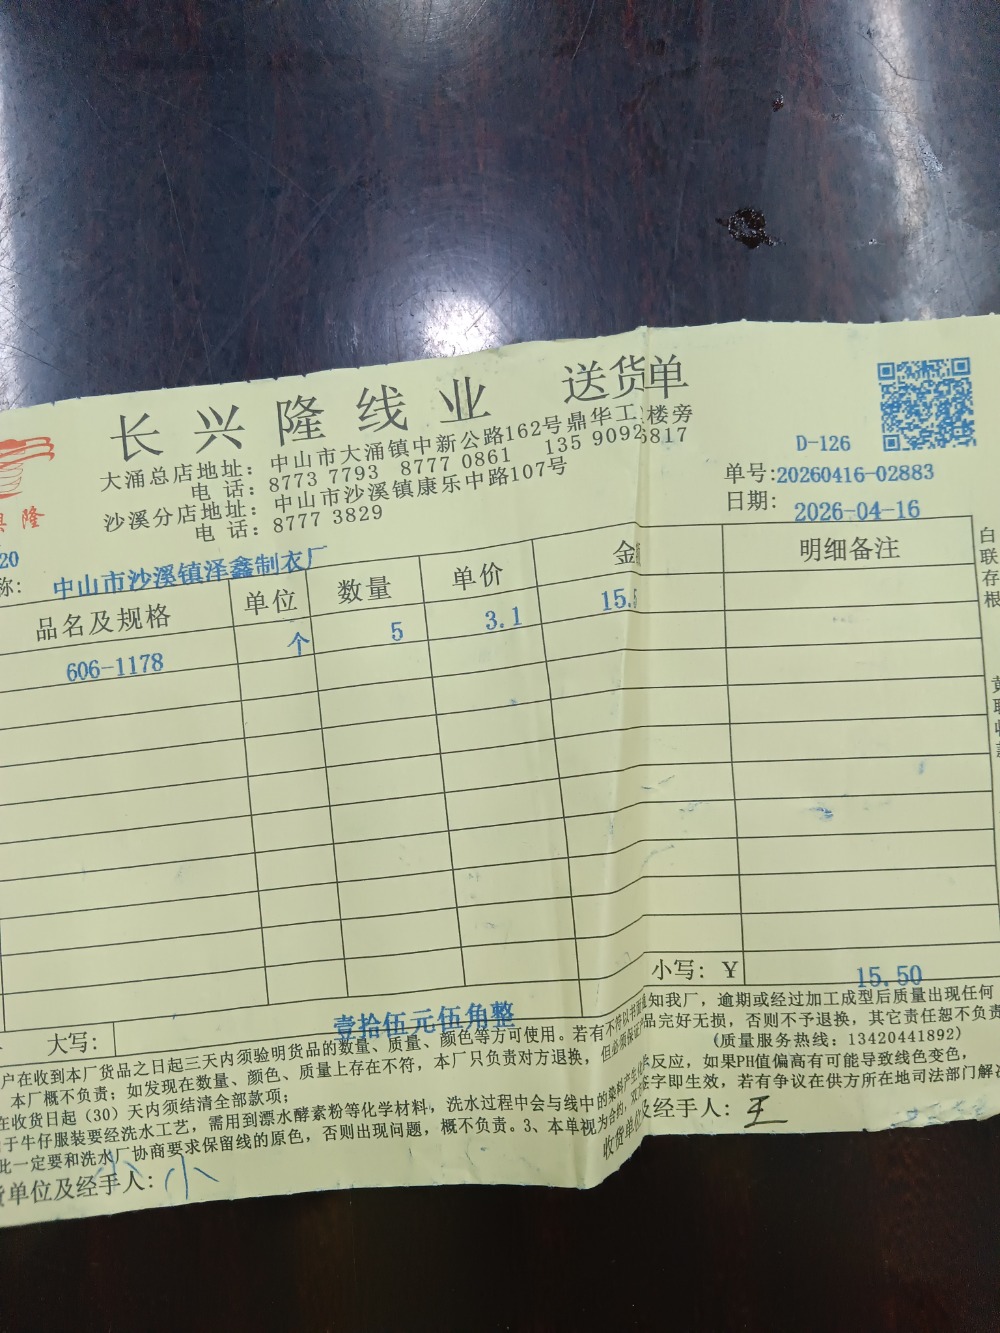 长兴隆线业 送货单
大涌总店地址：中山市大涌镇中新公路162号鼎华工 楼旁
电 话：8773 7793 8777 0861 135 9092 6817
沙溪分店地址：中山市沙溪镇康乐中路107号
电 话：8777 3829
D-126
单号:20260416-02883
日期: 2026-04-16
隆
20
称: 中山市沙溪镇泽鑫制衣厂
品名及规格 单位 数量 单价 金 明细备注
606-1178 个 5 3.1 15.5
白联存根
小写: ¥ 15.50
大写: 壹拾伍元伍角整
户在收到本厂货品之日起三天内须验明货品的数量、质量、颜色等方可使用。若有不符以书面通知我厂，逾期或经过加工成型后质量出现任何
本厂概不负责；如发现在数量、颜色、质量上存在不符，本厂只负责对方退换，但必须保证产品完好无损，否则不予退换，其它责任恕不负责
在收货日起（30）天内须结清全部款项； (质量服务热线：13420441892)
于牛仔服装要经洗水工艺，需用到漂水酵素粉等化学材料，洗水过程中会与线中的染料产生化学反应，如果PH值偏高有可能导致线色变色，
此一定要和洗水厂协商要求保留线的原色，否则出现问题，概不负责。3、本单视为合约，双方签字即生效，若有争议在供方所在地司法部门解决
货单位及经手人: 小
收货单位及经手人: 王